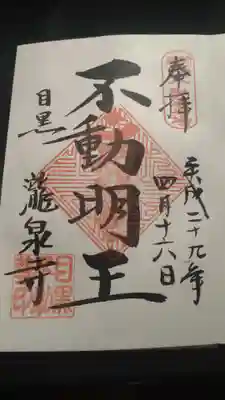 奉拝
平成二十九年
四月十六日
不動明王
目黒
瀧泉寺